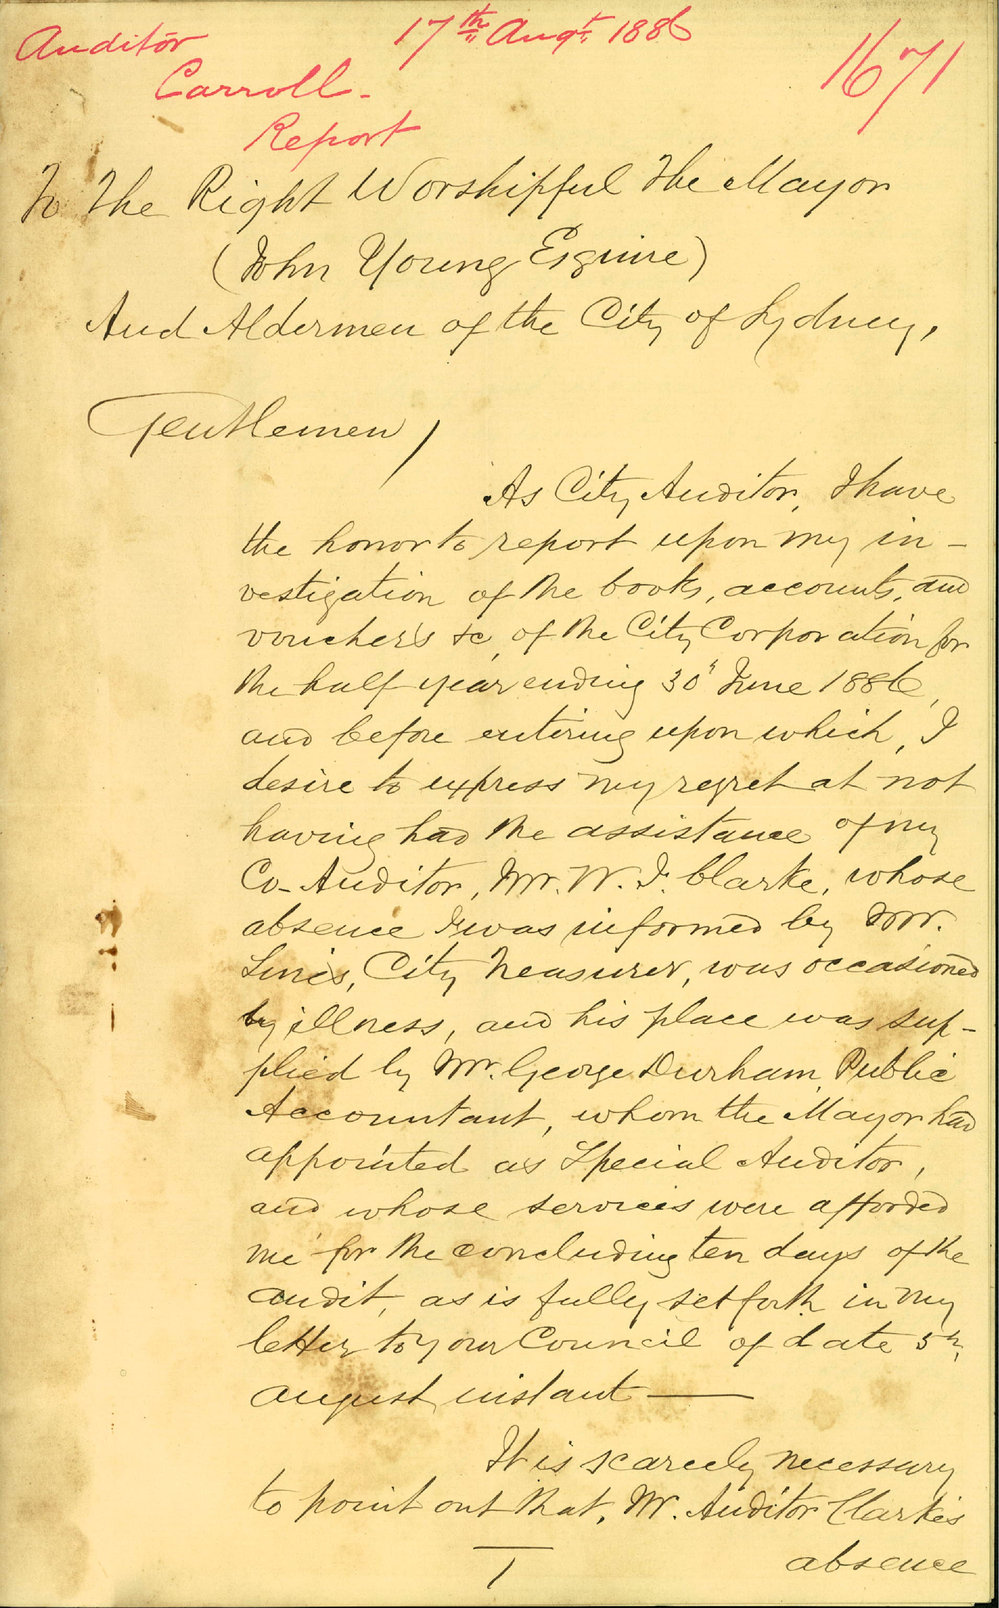 Auditor
Carroll -
Report
17th Augt. 1886
1671
To The Right Worshipful The Mayor
(John Young Esquire)
And Aldermen of the City of Sydney,
Gentlemen,
As City Auditor, I have
the honor to report upon my in-
vestigation of the books, accounts, and
vouchers &c, of the City Corporation for
the half year ending 30" June 1886,
and before entering upon which, I
desire to express my regret at not
having had the assistance of my
Co-Auditor, Mr. W. J. Clarke, whose
absence I was informed by Mr.
City Treasurer, was occasioned
by illness, and his place was sup-
plied by Mr. George Durham, Public
Accountant, whom the Mayor had
appointed as Special Auditor,
and whose services were afforded
me for the concluding ten days of the
audit, as is fully set forth in my
letter to your Council of date 5th,
august instant —
It is scarcely necessary
to point out that, Mr. Auditor Clarke's
absence
1